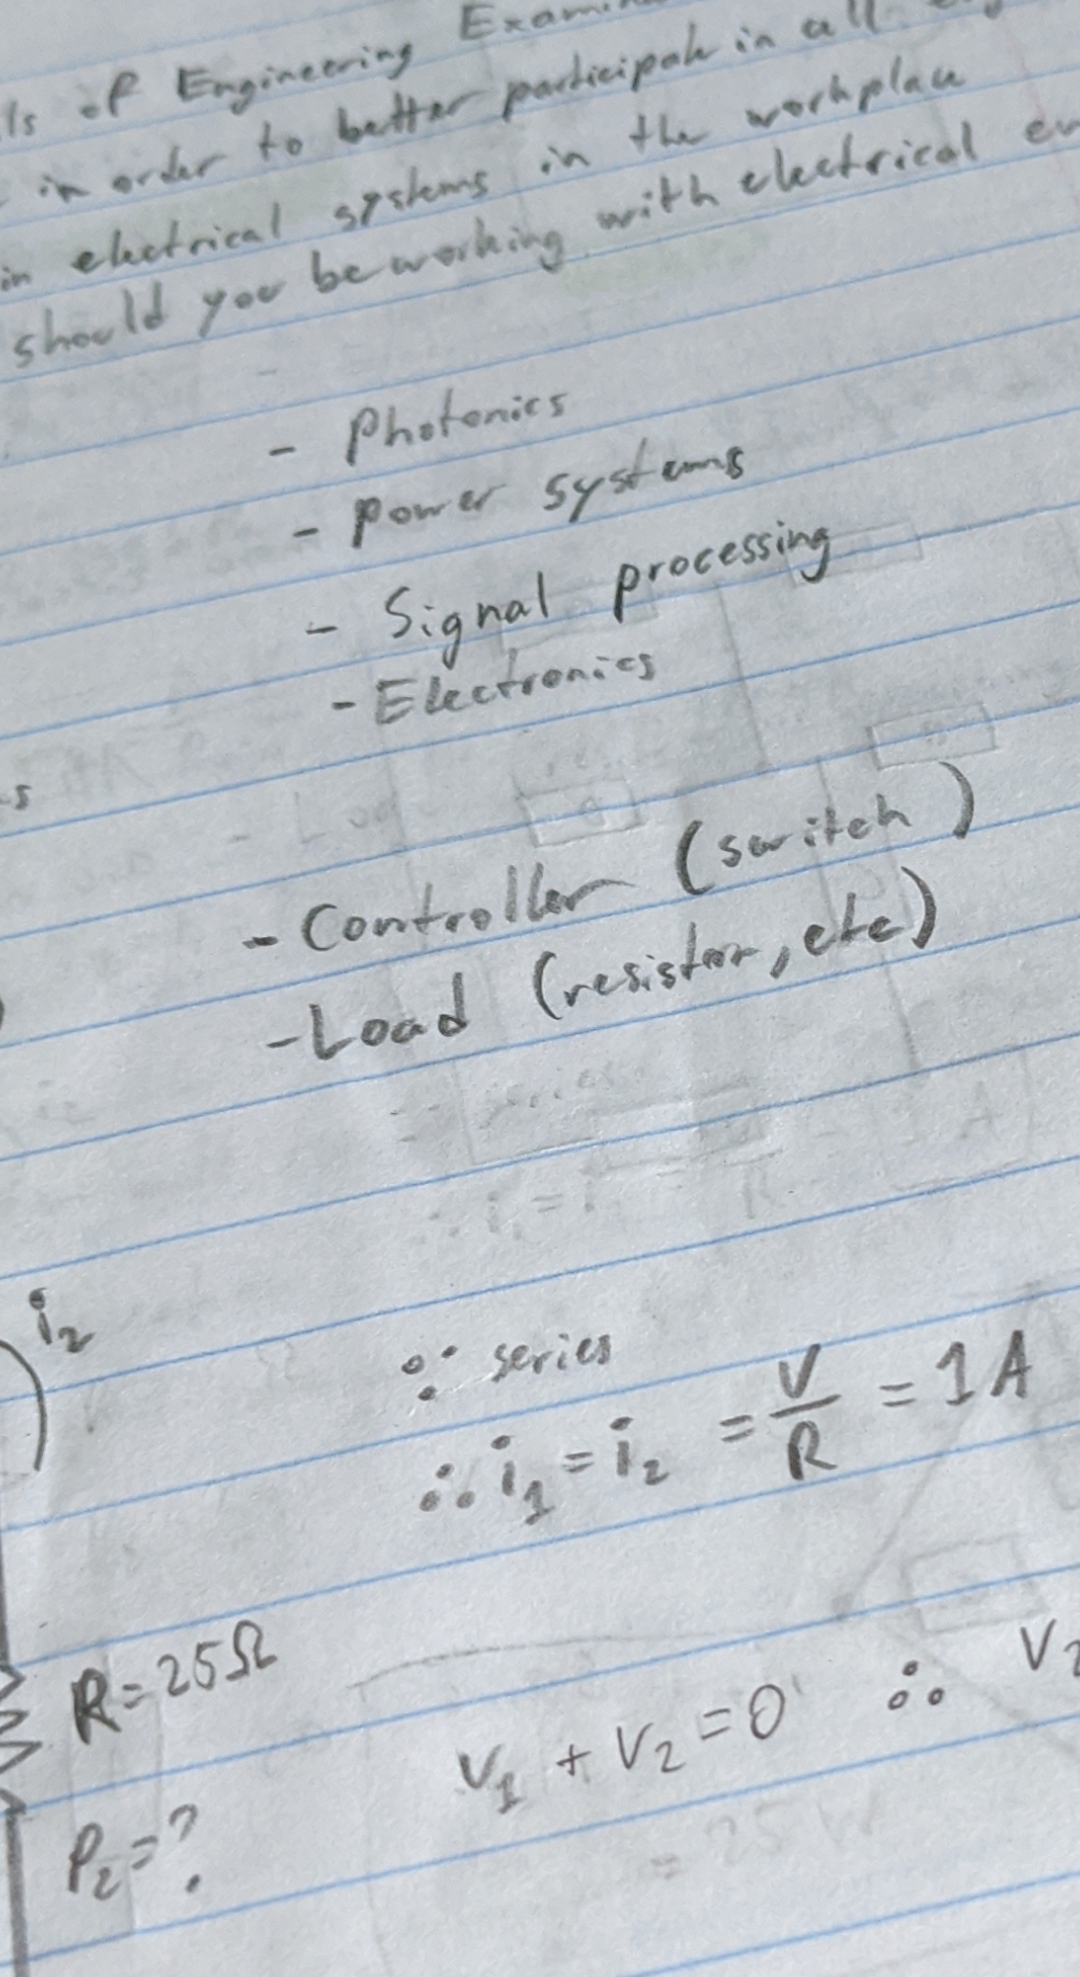 ls of Engineering
in order to better participate in all
in electrical systems in the workplace
should you be working with electrical
- Photonics
- Power systems
- Signal processing
- Electronics
- Controller (switch)
- Load (resistor, etc)
i₂
∵ series
∴ i₁ = i₂ = V/R = 1A
R = 25Ω
V₁ + V₂ = 0 ∴ V₂
P₂ = ?